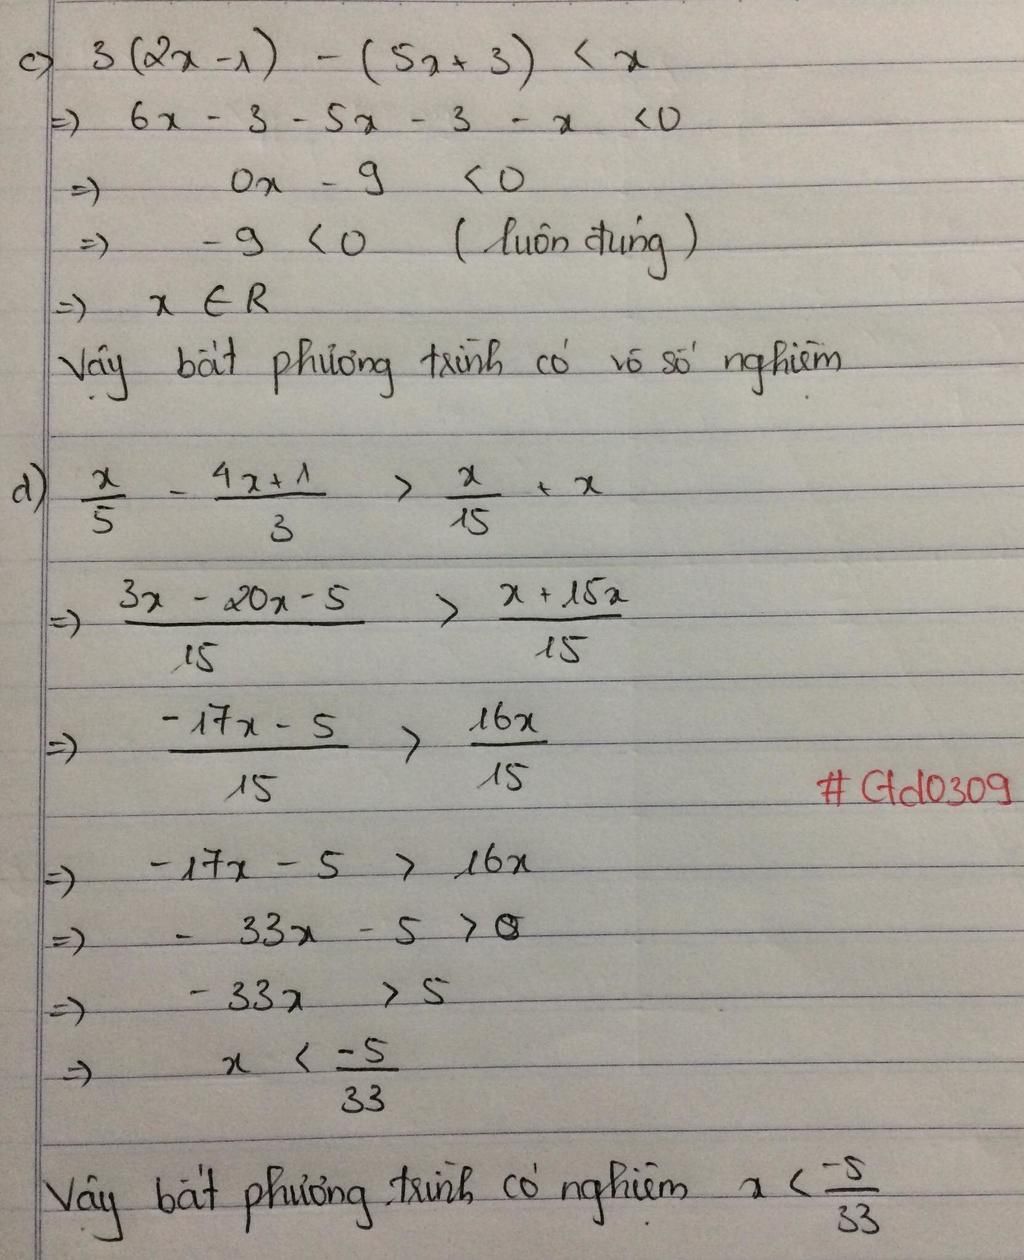 c) 3(2x-1) - (5x+3) < x
=) 6x - 3 - 5x - 3 - x < 0
=) 0x - 9 < 0
=) -9 < 0 (luôn đúng)
=) x ∈ R
Vậy bất phương trình có vô số nghiệm
d) x/5 - (4x+1)/3 > x/15 + x
=) (3x - 20x - 5)/15 > (x + 15x)/15
=) (-17x - 5)/15 > 16x/15
#Gtd0309
=) -17x - 5 > 16x
=) - 33x - 5 > 0
=) -33x > 5
=) x < -5/33
Vậy bất phương trình có nghiệm x < -5/33